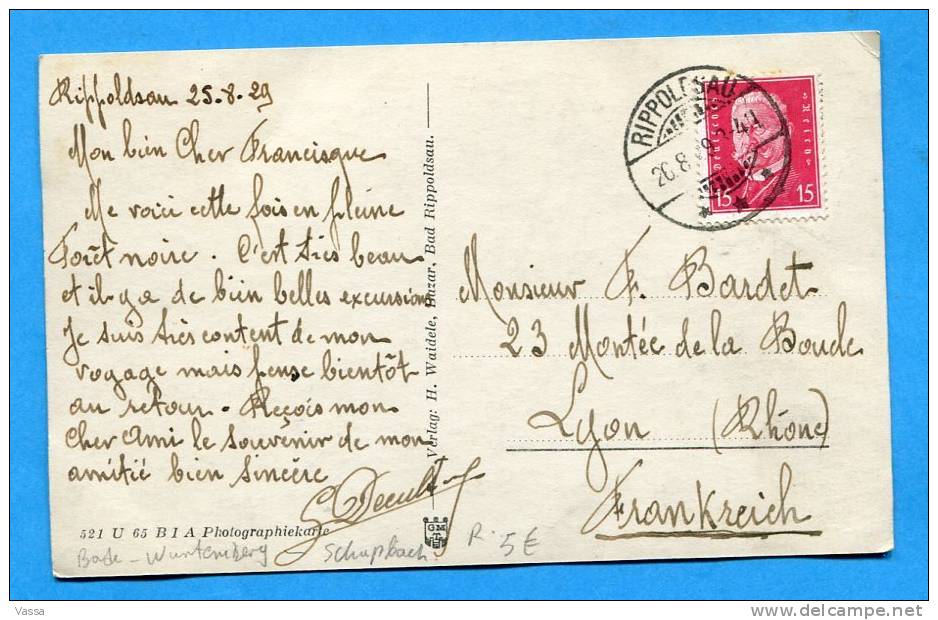 Rippoldsau 25.8.29
Mon bien Cher Francisque
Me voici cette fois en pleine
Forêt noire. C'est très beau
et il y a de bien belles excursions
Je suis très content de mon
voyage mais pense bientôt
au retour. Reçois mon
Cher Ami le souvenir de mon
amitié bien sincère
521 U 65 B I A Photographiekarte
Bade - Wurtemberg
Schapbach
R. 5€
Verlag: H. Waidele, Bazar, Bad Rippoldsau.
GM
RIPPOLDSAU
26.8
Deutsches Reich
15 15
Monsieur F. Bardet
23 Montée de la Boucle
Lyon (Rhône)
Frankreich
Vassa
http://www.delcampe.net